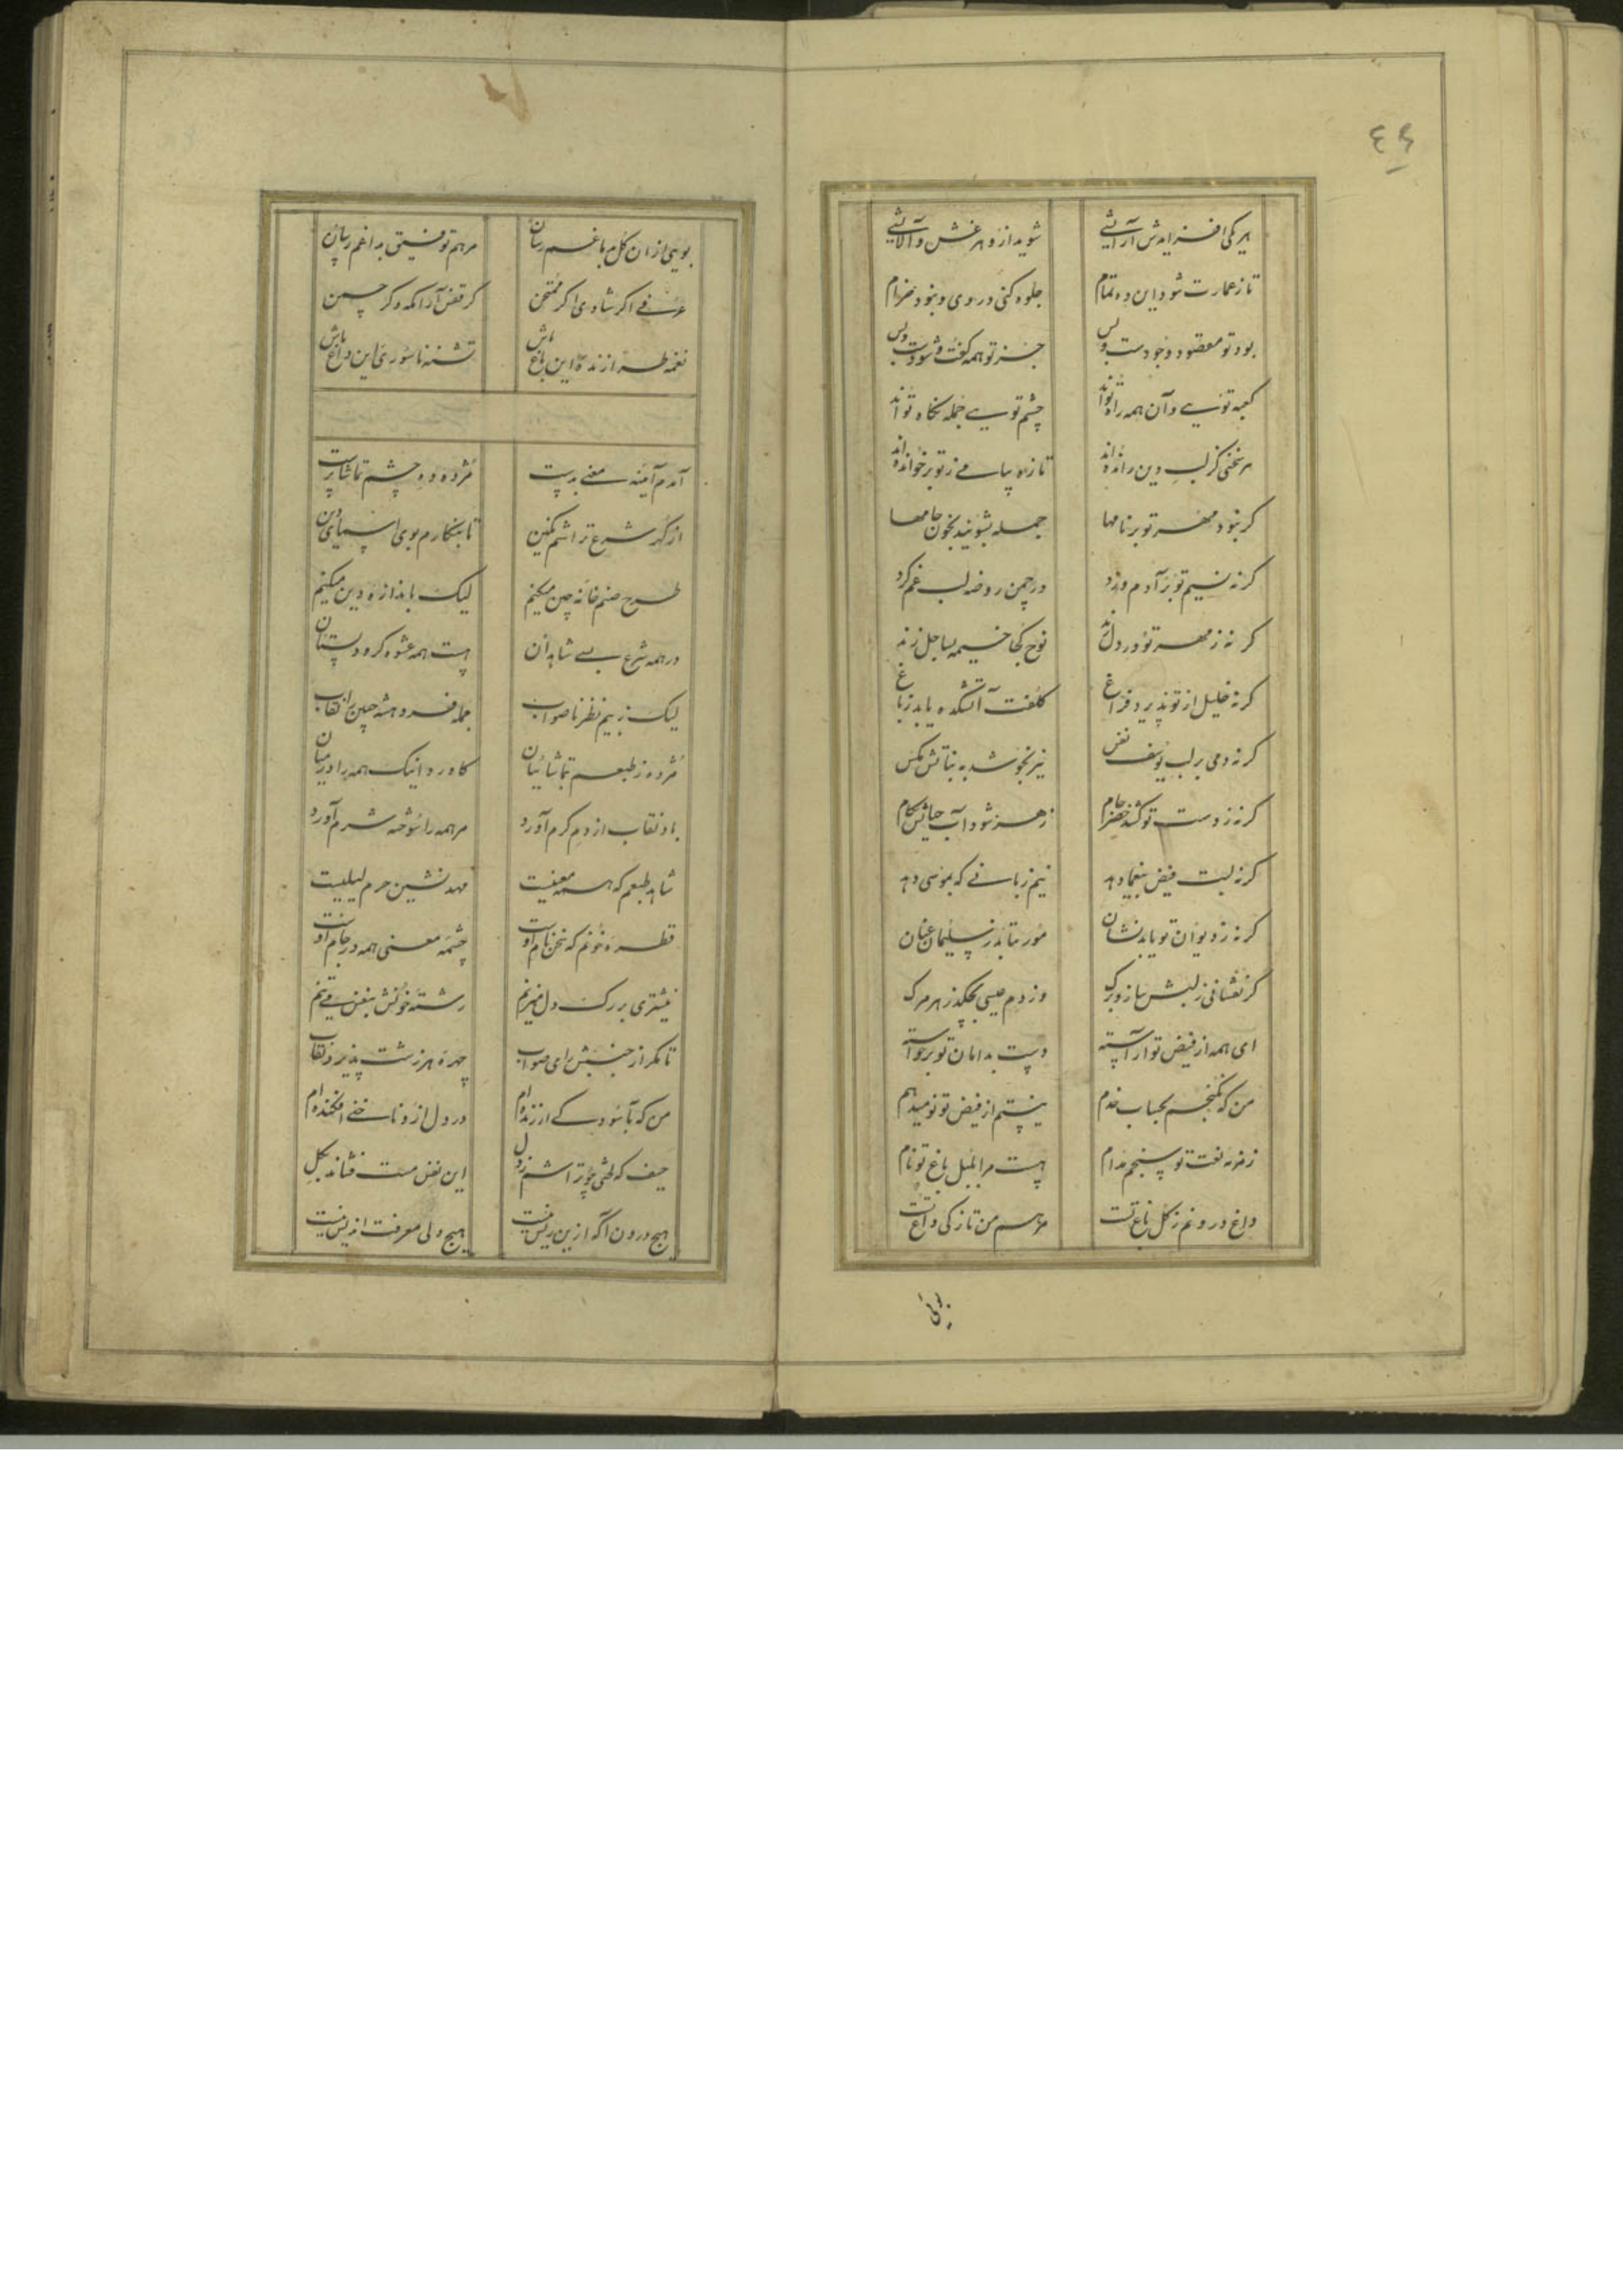 ٤٤
هر یکی افزایدش آرایشی شوید ازو هر غش و آلایشی
تا ز عمارت شود این ده تمام جلوه کنی در وی و نبود خرام
بود تو مقصود وجودست و بس جز تو همه گفت و شنودست و بس
کعبه تویی و آن همه راه تواند چشم تویی جمله نگاه تواند
هر سخنی کز لب دین رانده‌اند تازه پیامی ز تو برخوانده‌اند
گر نبود مهر تو بر نامها جمله بشویند بخون جامها
گر نه نسیم تو بر آدم وزد در چمن روضه لب غم گزد
گر نه ز مهر تو در دل نوح کجا خیمه بساحل زند
گر نه خلیل از تو پذیرد فراغ کلفت آتشکده یابد ز باغ
گر نه دمی بر لب یوسف نفس نیز نجوشد به نباتش مگس
گر نه ز دست تو کشد خضر جام زهر شود آب حیاتش بکام
گر نه لبت فیض بنعما دهد نیم زبانی که بموسی دهد
گر نه ز دیوان تو یابد نشان مور بتابد ز سلیمان عنان
گر نفشانی ز لبش ساز و برگ وز دم عیسی بچکد زهر مرگ
ای همه از فیض تو آراسته دست بدامان تو برخواسته
من که نگنجم بحساب خدم نیستم از فیض تو نومید هم
زمزمه نعت تو سنجم مدام هست مرا بلبل باغ تو نام
داغ درونم ز گل باغ تست مرهم من تازگی داغ تست
بویی
بویی از ان گل بدماغم رسان مرهم توفیق بداغم رسان
عرفی اگر شادی اگر ممتحن گر قفس آرامگه و گر چمن
نغمه طرازنده این باغ باش تشنه ناسوری این داغ باش
آمدم آیینه معنی بدست مژده ده چشم تماشاپرست
از گهر شرع تراشم نگین تا بنگارم بوی اسمای دین
طرح صنم خانه چین میکنم لیک باندازه دین میکنم
در همه شرع بسی شاهدان هست همه عشوه‌گر و دلستان
لیک ز بیم نظر ناصواب جمله فرو هشته جبین را نقاب
مژده ز طبعم بتماشاییان کاورد اینک همه را در میان
باد نقاب از دم گرم آورد مر همه را شوخ شرم آورد
شاهد طبعم که همه معنیست مهد نشین حرم لیلیست
قطره خونم که سخن نام اوست چشمه معنی همه در جام اوست
نیشتری بر رگ دل میزنم رشته خونش بنفس می‌تنم
تا مگر از جنبش رای صواب چهره هر زشت پذیرد نقاب
من که بآسودگی ارزنده‌ام در دل ازو ناخنی افکنده‌ام
حیف که لختی چو تراشم ز دل این نفس مست فشاند بگل
هیچ درون آگه ازین ریش نیست هیچ دلی معرفت اندیش نیست